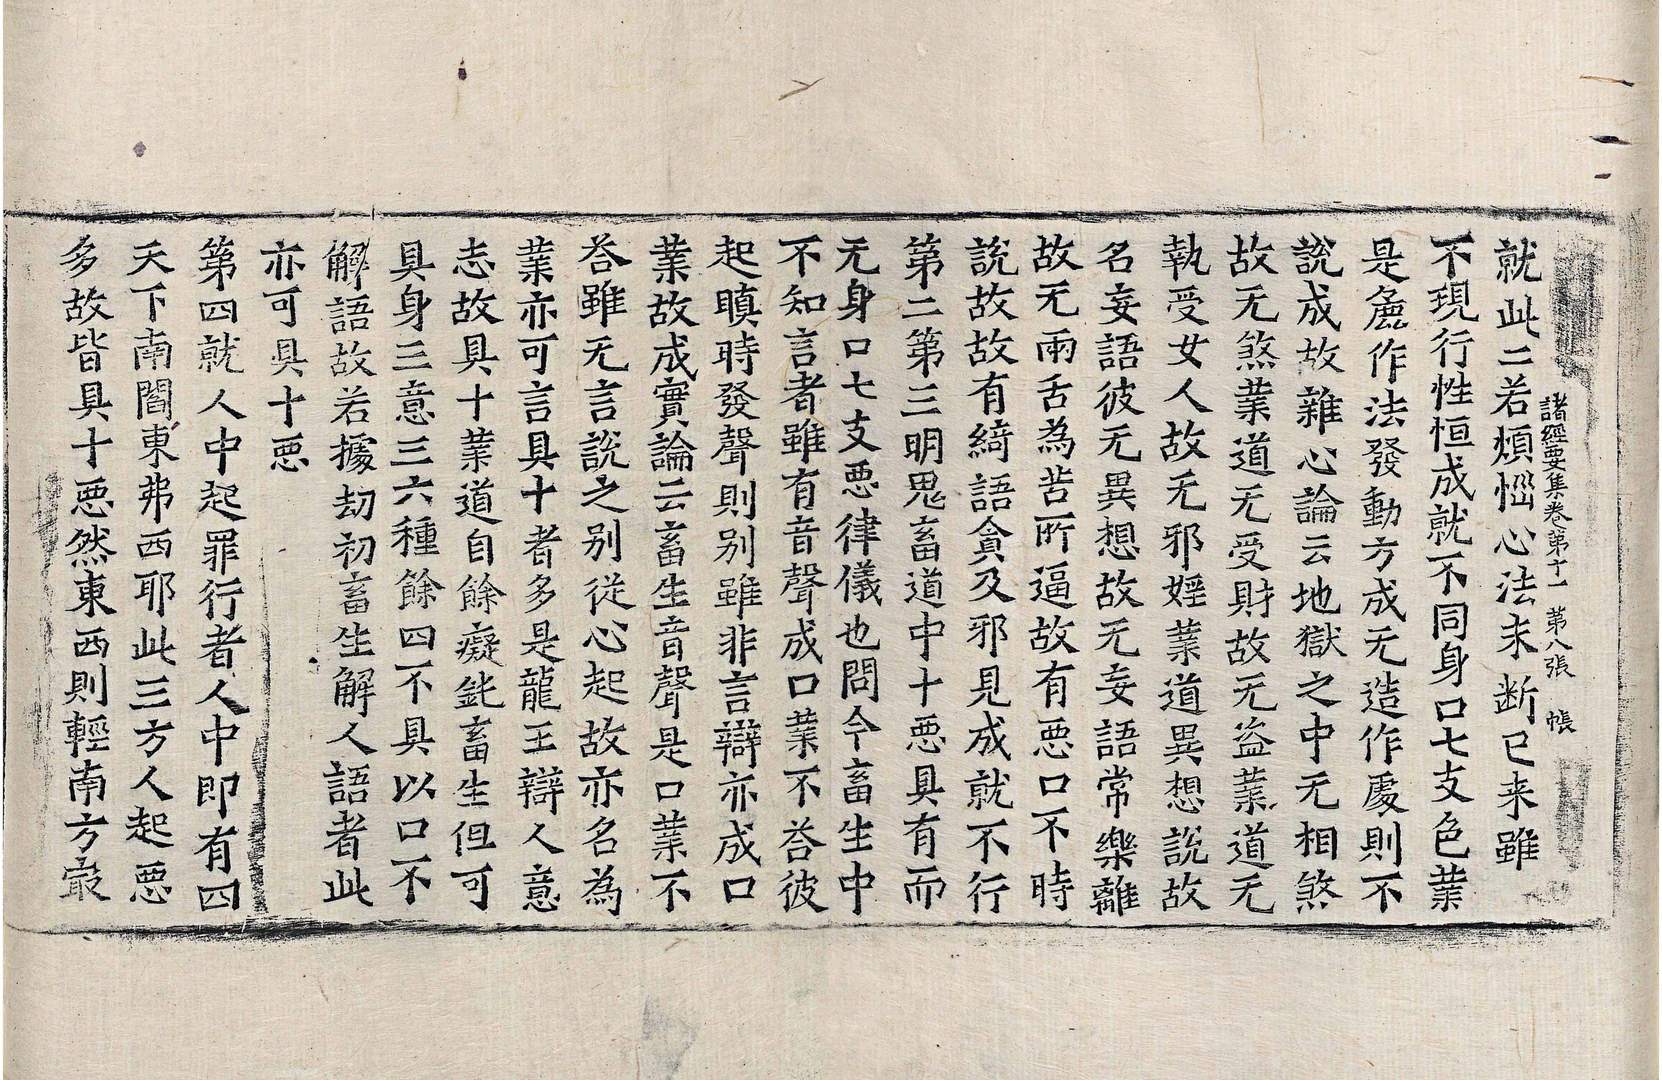 諸經要集卷第十一 第八張 帳
就此二若煩惱心法未断已来雖
不現行性恒成就不同身口七支色業
是麁作法發動方成无造作處則不
說成故雜心論云地獄之中无相煞
故无煞業道无受財故无盗業道无
執受女人故无邪婬業道異想說故
名妄語彼无異想故无妄語常樂離
故无兩舌為苦所逼故有悪口不時
說故故有綺語貪及邪見成就不行
第二第三明鬼畜道中十悪具有而
无身口七支悪律儀也問今畜生中
不知言者雖有音聲成口業不荅彼
起瞋時發聲則别雖非言辯亦成口
業故成實論云畜生音聲是口業不
荅雖无言說之别従心起故亦名為
業亦可言具十者多是龍王辯人意
志故具十業道自餘癡鈍畜生但可
具身三意三六種餘四不具以口不
解語故若據劫初畜生解人語者此
亦可具十悪
第四就人中起罪行者人中即有四
天下南閻東弗西耶此三方人起悪
多故皆具十悪然東西則輕南方㝡